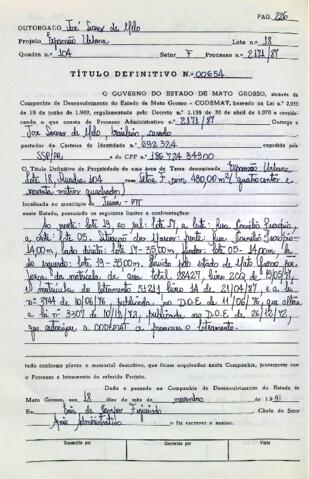 PAG. 226
OUTORGADO José Soares de Melo
Projeto Expansão Urbana Lote n.º 18
Quadra n.º 104 Setor F Processo n.º 2171/87
TÍTULO DEFINITIVO N.º 00654
O GOVERNO DO ESTADO DE MATO GROSSO, através da
Companhia de Desenvolvimento do Estado de Mato Grosso - CODEMAT, baseado na Lei n.º 2.935
de 19 de junho de 1.969, regulamentado pelo Decreto n.º 1.138 de 30 de abril de 1.970 e considerando
o que consta do Processo Administrativo n.º 2171/87 Outorga a
José Soares de Melo, brasileiro, casado
portador da Carteira de Identidade n.º 692324
SSP/PR e do CPF n.º 186 724 349 00
O Título Definitivo de Propriedade de uma área de Terra denominada Expansão Urbana
Lote 18, Quadra 104 Setor F com 490,00 m² (quatrocentos e
noventa metros quadrados)
localizado no município de Juína-MT
neste Estado, possuindo os seguintes limites e confrontações:
Ao norte: lote 19, ao sul: lote 17, a leste: Rua
oeste: lote 05. frente: Rua
14,00m, lado direito: lote 17-35,00m, fundos: lote 05-14,00m, lado
esquerdo: lote 19-35,00m. do estado de Mato Grosso por
força da matrícula da área total 28427, livro 202
e matrícula do loteamento livro 14 de 21/04/87, e a lei
n.º 3744 de 10/06/76, publicada no D.O.E de 11/06/76, que altera
a lei n.º 3307 de 10/12/73, publicada no D.O.E de 26/12/72,
que autorizou a CODEMAT a promover o loteamento.
tudo conforme planta e memorial descritivo, que ficam arquivados nesta Companhia, juntamente com
o Processo e loteamento do referido Projeto.
Dado e passado na Companhia de Desenvolvimento do Estado de
Mato Grosso, aos 18 dias do mês de novembro de 1991
Eu, Chefe do Setor
Apoio Administrativo o fiz escrever e assino.
Transcrito por Conferido por Visto